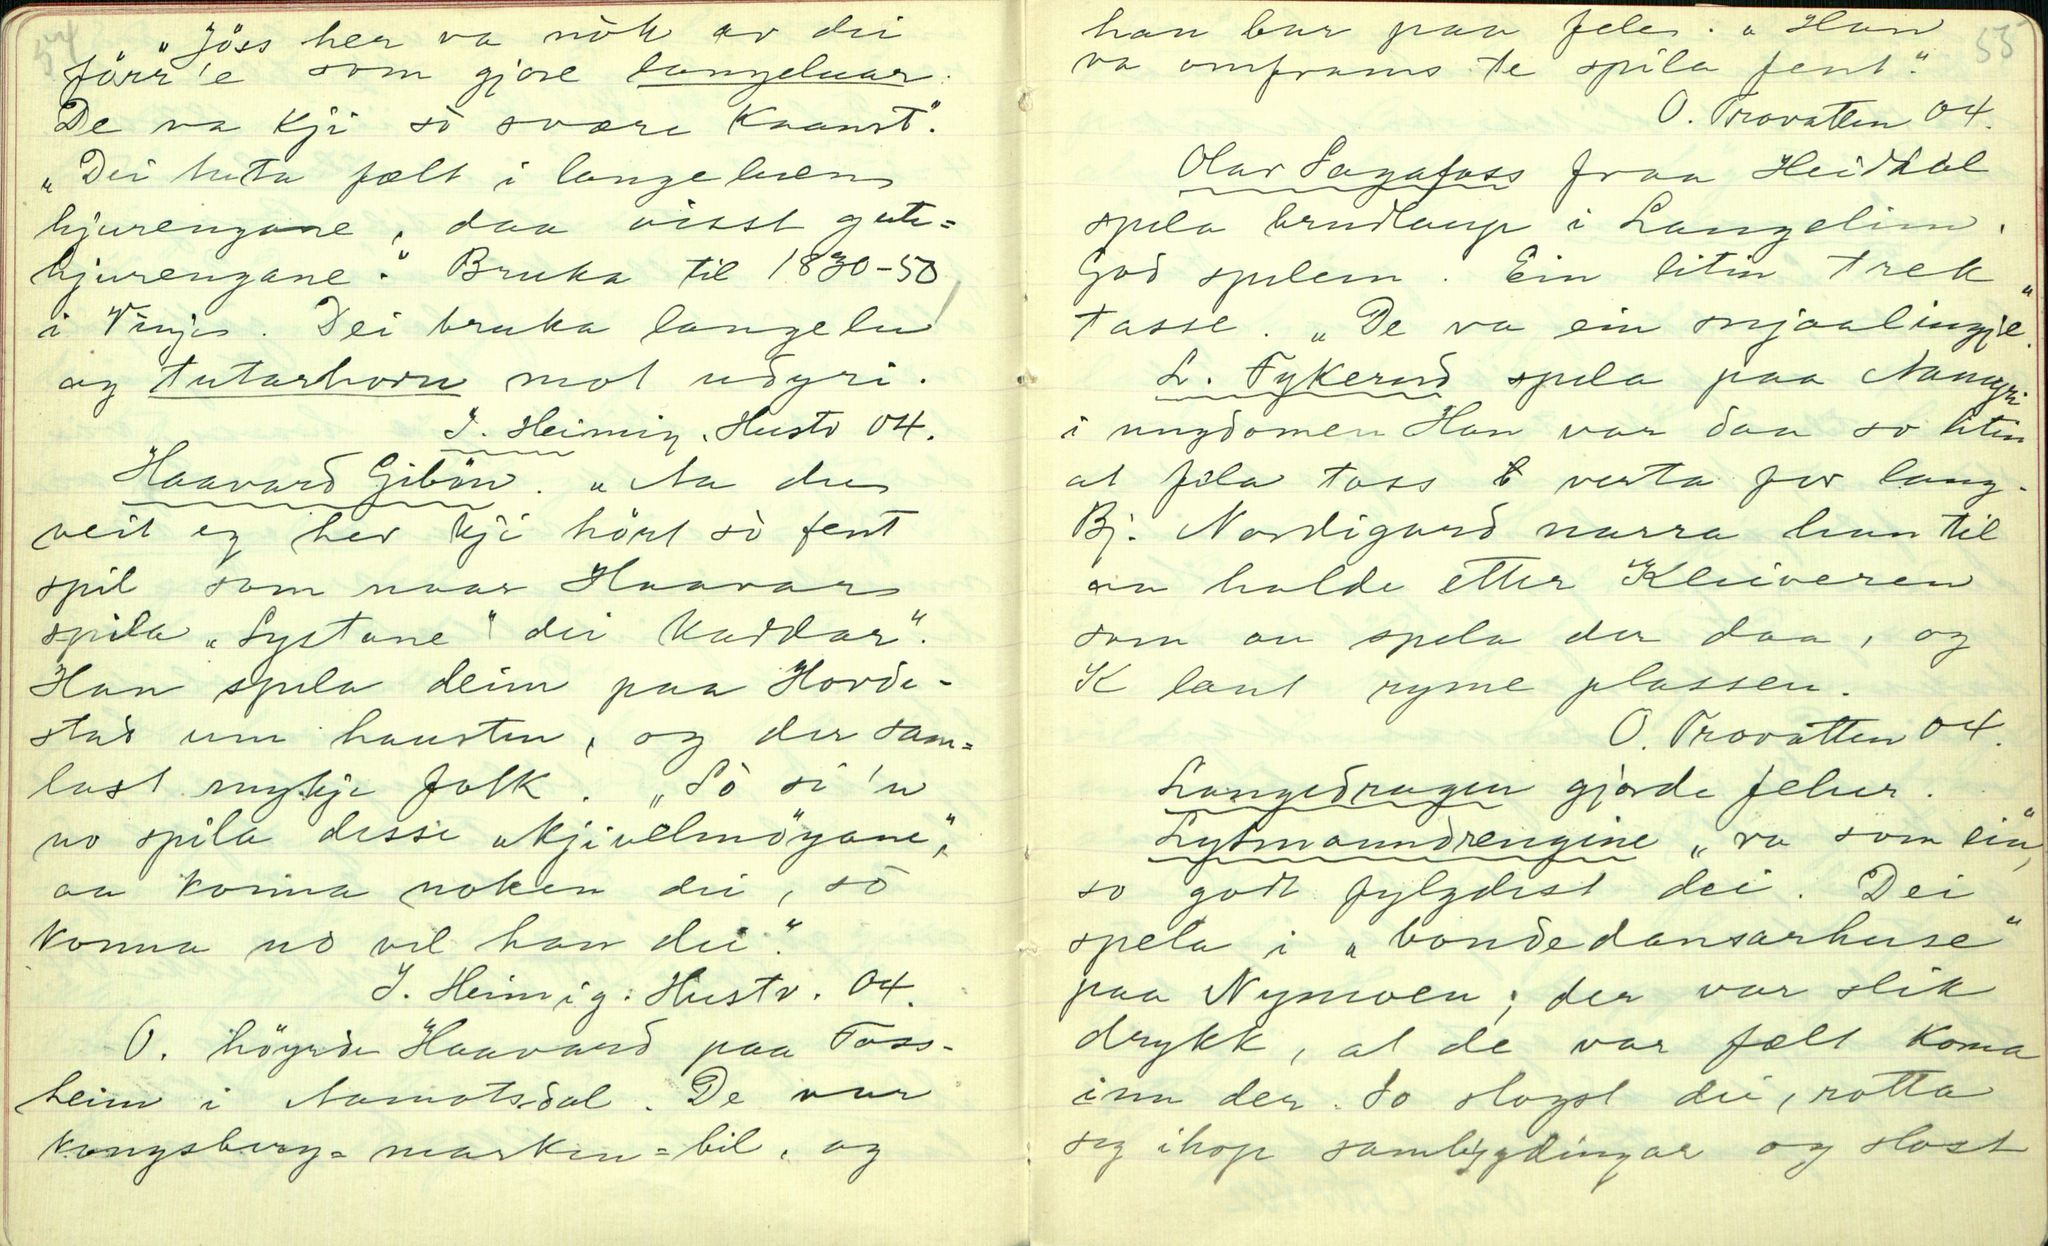 54
„Jöss her va nòk av dei
förr'e som gjore langeluar.
De va kji sò svære kaanst".
„Dei tuta fælt i langeluen
hjurengane, daa visst gute=
hjurengane." Bruka til 1830-50
i Vinje. Dei bruka langelu
og tutarhorn mot udyri.
J. Heimig. Hustv 04.
Haavard Gibön. „Aa du
veit eg hev kji hört sò fent
spil som naar Haavar
spila „Systane" dei kaddar".
Han spela deim paa Horde-
stad um hausten, og der sam=
last mykje folk. „Sò si 'n
no spila desse „kjivlemöyane",
aa konna noken dei, sò
konna no vel han dei".
J. Heimig. Hustv. 04.
O. höyrde Haavard paa Foss-
heim i Aamotsdal. De var
Kongsberg=marken=bil, og
55
han bar paa fele. „Han
va omframs te spila fent".
O. Trovatten 04.
Olav Sagafoss fraa Heiddal
spela brudlaup i Langelim.
God spelem. Ein liten trek
tasse. „De va ein snjaalingje".
L. Fykerud spela paa Aamgri
i ungdomen Han var daa so liten
at fela toss verta for lang.
Bj. Nordigard narra han til
aa halde etter Kleiveren
som au spela der daa, og
K laut ryme plassen.
O. Trovatten 04.
Langedragen gjorde felur.
Lytmanndrengine „va som ein",
so godt fylgdest dei. Dei
spela i „bondedansarhuse"
paa Nymoen; der var slik
drykk, at de var fælt koma
inn der. So slogst dei, rotta
seg ihop sambygdingar og slost